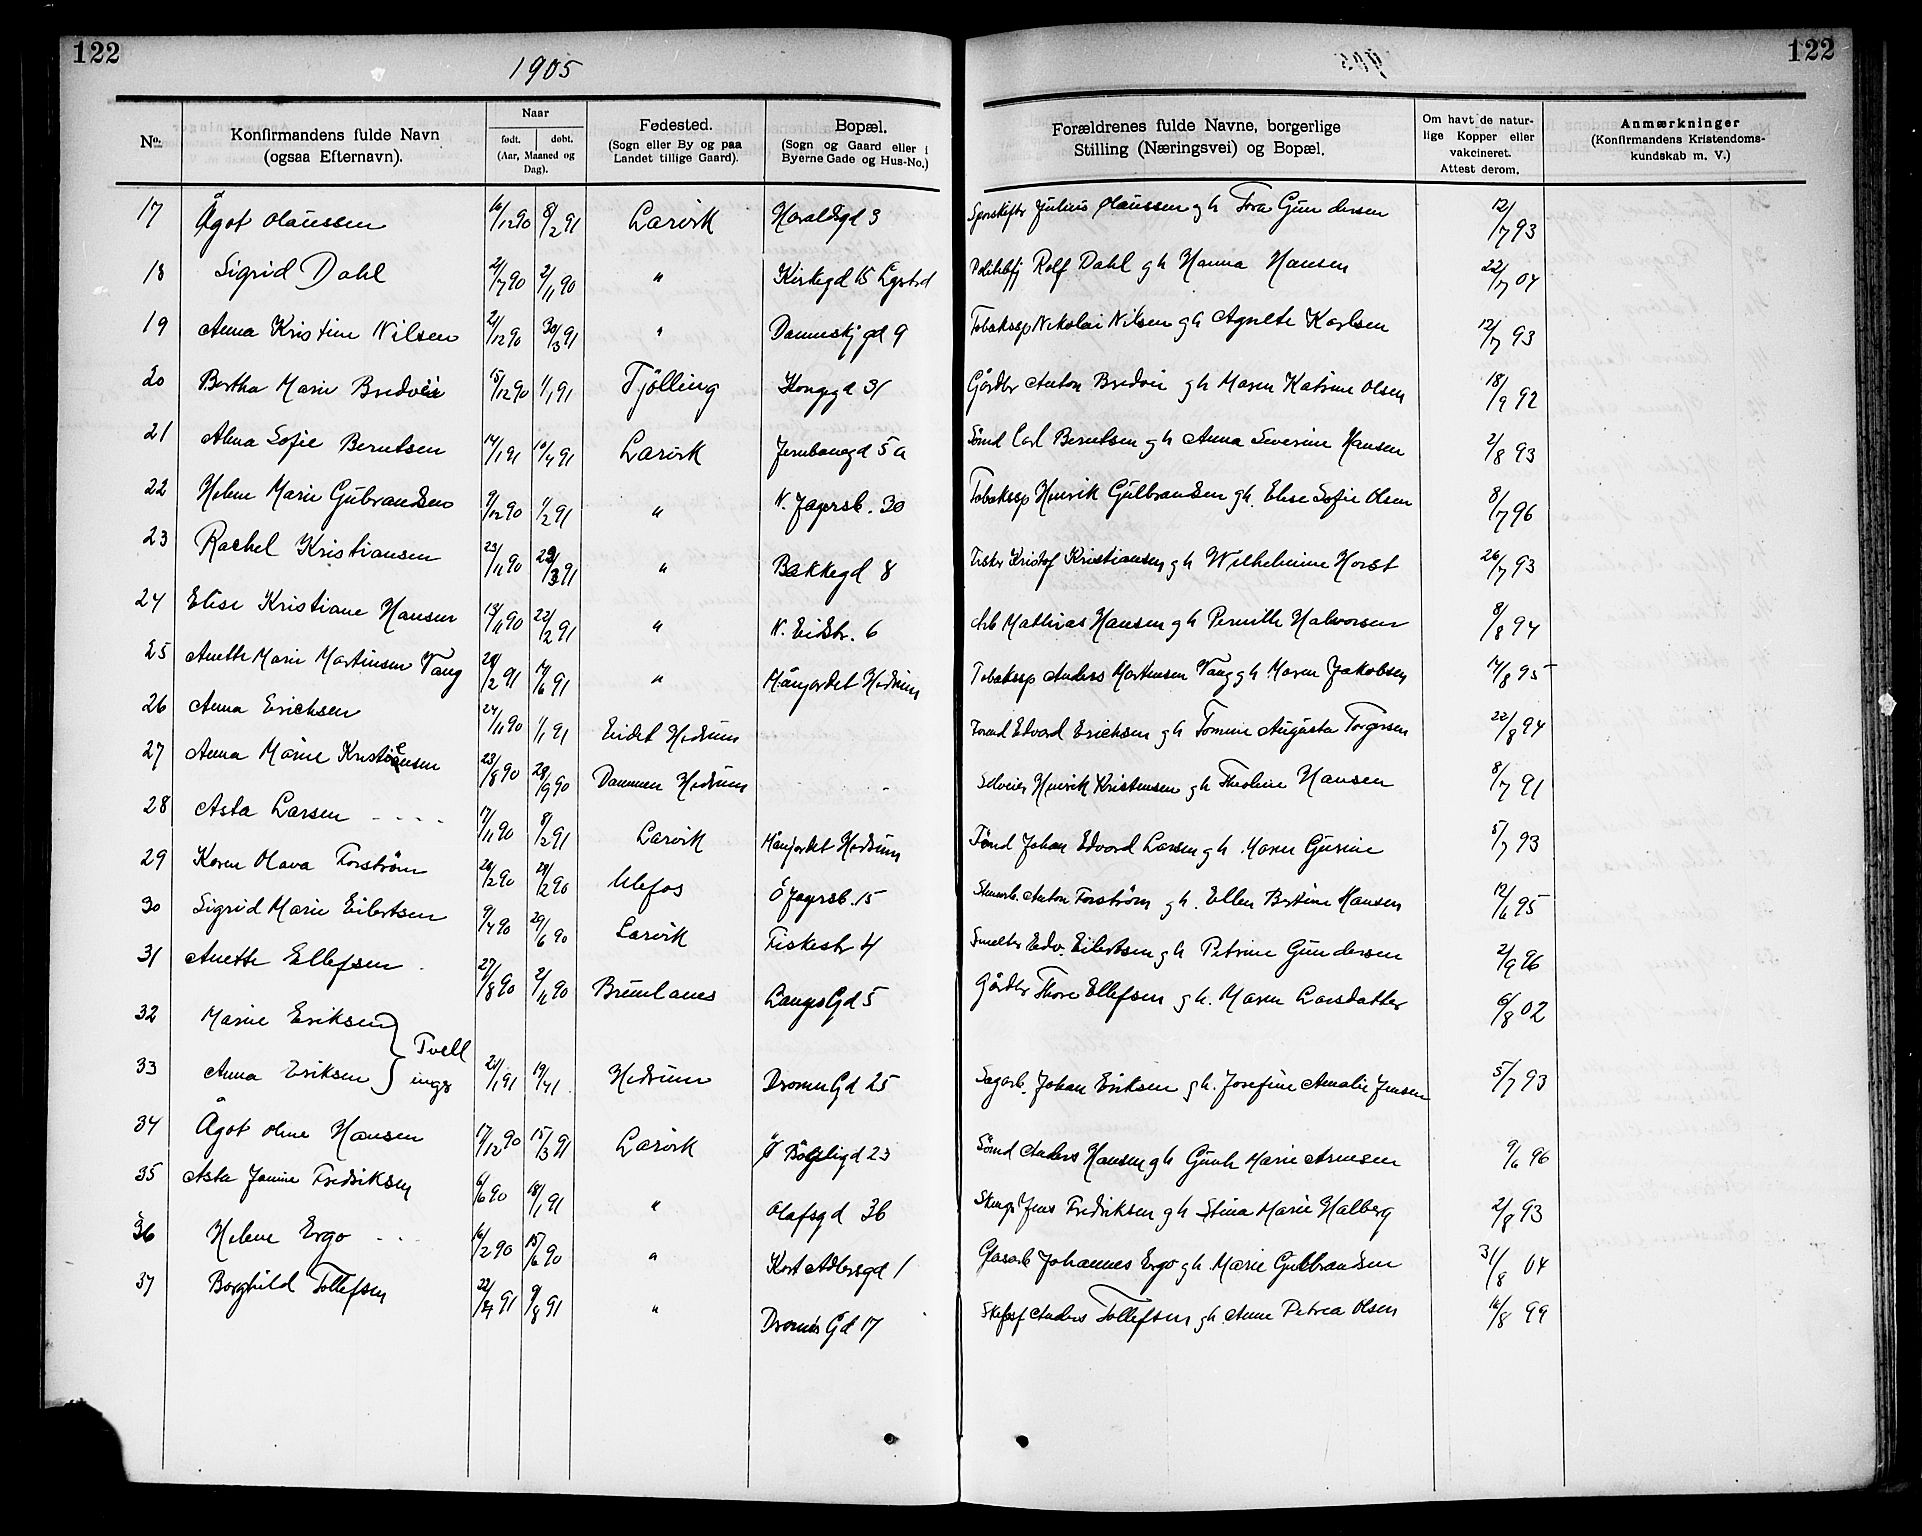 122
1905
122
No. Konfirmandens fulde Navn (ogsaa Efternavn). Naar født. døbt. (Aar, Maaned og Dag). Fødested. (Sogn eller By og paa Landet tillige Gaard). Bopæl. (Sogn og Gaard eller i Byerne Gade og Hus-No.) Forældrenes fulde Navne, borgerlige Stilling (Næringsvei) og Bopæl. Om havt de naturlige Kopper eller vakcineret. Attest derom. Anmærkninger (Konfirmandens Kristendomskundskab m. V.)
17 Ågot Olaussen 16/12 90 8/2 91 Larvik Haraldsgd 3 Julius Olaussen gh Tora Gundersen 12/7 93
18 Sigrid Dahl 21/7 90 2/11 90 " Kirkegd 15 Rolf Dahl gh Hanna Hansen 22/7 04
19 Anna Kristine Nilsen 21/12 90 30/3 91 " Danneskj gd 9 Tobakssp Nikolai Nilsen gh Agnethe Karlsen 12/7 93
20 Bertha Marie Bredvei 15/12 90 1/1 91 Tjølling Kongegd 31 Gårdbr Anton Bredvei gh Maren Katrine Olsen 18/9 92
21 Alma Sofie Berntsen 14/1 91 10/4 91 Larvik Jernbanegd 5a Sömd Carl Berntsen gh Anna Severine Hansen 2/8 93
22 Helene Marie Gulbrandsen 9/12 90 1/2 91 " N. Jegersb. 30 Tobaksp Henrik Gulbrandsen gh. Elise Sofie Olsen 8/7 96
23 Rachel Kristiansen 23/11 90 29/3 91 " Bakkegd 8 Fisker Kristof Kristiansen gh Wilhelmine Horst 26/7 93
24 Elise Kristiane Hansen 13/11 90 22/2 91 " N. Eidstr. 6 Arb Mathias Hansen gh Pernille Halvorsen 8/8 94
25 Anette Marie Martinsen Vang 20/2 91 14/6 91 " Månejordet Hedrum Tobaksp Anders Martinsen Vang gh Maren Jakobsen 14/8 95
26 Anna Erichsen 24/11 90 1/1 91 Eidet Hedrum Edvard Erichsen gh Tomine Augusta Torgersen 22/8 94
27 Anna Marie Kristensen 23/8 90 28/9 90 Dammen Hedrum Selveier Henrik Kristensen gh Theoline Hansen 8/7 91
28 Asta Larsen 17/11 90 8/2 91 Larvik Månejordet Hedrum Tömd Johan Edvard Larsen gh Maren Gurine 5/7 93
29 Karen Olava Forström 20/2 90 20/2 90 Ulefos Ö Jegersb. 15 Stenarb. Anton Forström gh. Ellen Bertine Hansen 12/6 95
30 Sigrid Marie Eilertsen 9/4 90 29/6 90 Larvik Fiskestr 4 Smelter Edv. Eilertsen gh Petrine Gundersen 2/9 96
31 Anette Ellefsen 27/8 90 2/11 90 Brunlanes LangesGd 5 Gårdbr Thore Ellefsen gh. Maren Larsdatter 6/8 02
32 Marie Eriksen
33 Anna Eriksen } Tvillinger 21/1 91 19/4 1. Hedrum DronnGd 25 Sagarb. Johan Eriksen gh. Josefine Amalie Jensen 5/7 93
34 Ågot Oline Hansen 17/12 90 15/3 91 Larvik Ö Böglgd 23 Sömd Anders Hansen gh Gunh Marie Arnesen 9/6 96
35 Asta Janine Fredriksen 6/6 90 18/1 91 " Olafsgd 36 Jens Fredriksen gh Stina Marie Halberg 2/8 93
36 Helene Ergo 16/2 90 15/6 90 " Kort Adlersgd 1 Glasarb Johannes Ergo gh Marie Gulbrandsen 31/8 04
37 Borghild Tollefsen 22/4 91 9/8 91 " DronnGd 17 Anders Tollefsen gh. Anne Petrea Olsen 16/8 99